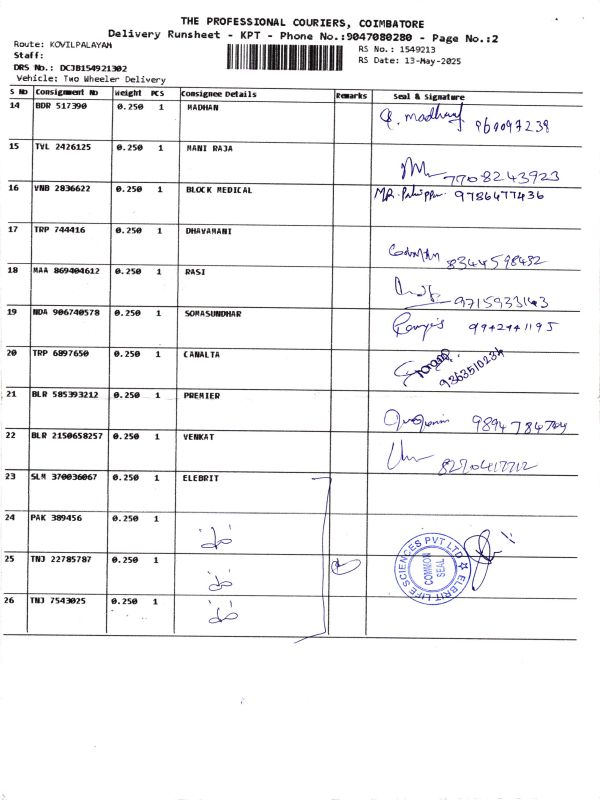 THE PROFESSIONAL COURIERS, COIMBATORE
Delivery Runsheet - KPT - Phone No.:9047080280 - Page No.:2
Route: KOVILPALAYAM
RS No.: 1549213
Staff:
RS Date: 13-May-2025
DRS No.: DCJB154921302
Vehicle: Two Wheeler Delivery
S No Consignment No Weight PCS Consignee Details Remarks Seal & Signature
14 BDR 517390 0.250 1 MADHAN
15 TVL 2426125 0.250 1 MANI RAJA 7708243923
16 VNB 2836622 0.250 1 BLOCK MEDICAL 9786477436
17 TRP 744416 0.250 1 DHAVAMANI 8344598452
18 MAA 869404612 0.250 1 RASI 9715933143
19 NDA 906740578 0.250 1 SOMASUNDHAR 9942441195
20 TRP 6897650 0.250 1 CANALTA 9363510234
21 BLR 585393212 0.250 1 PREMIER
22 BLR 2150658257 0.250 1 VENKAT 8220417712
23 SLM 370036067 0.250 1 ELEBRIT
24 PAK 389456 0.250 1
25 TNJ 22785787 0.250 1
26 TNJ 7543025 0.250 1
ELBRIT LIFE SCIENCES PVT LTD
COMMON
SEAL